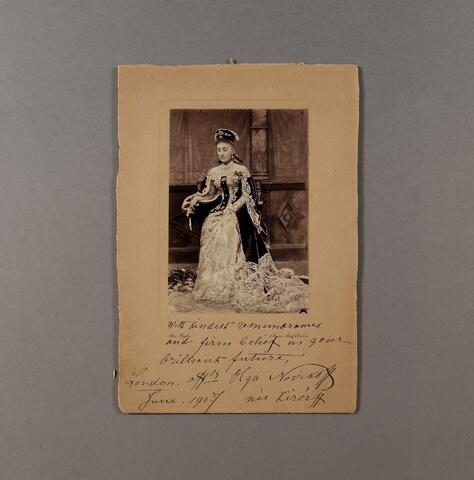 With kindest remembrances
and firm belief in your
brilliant future,
London. Olga Novikoff
June. 1907 née Kiréeff